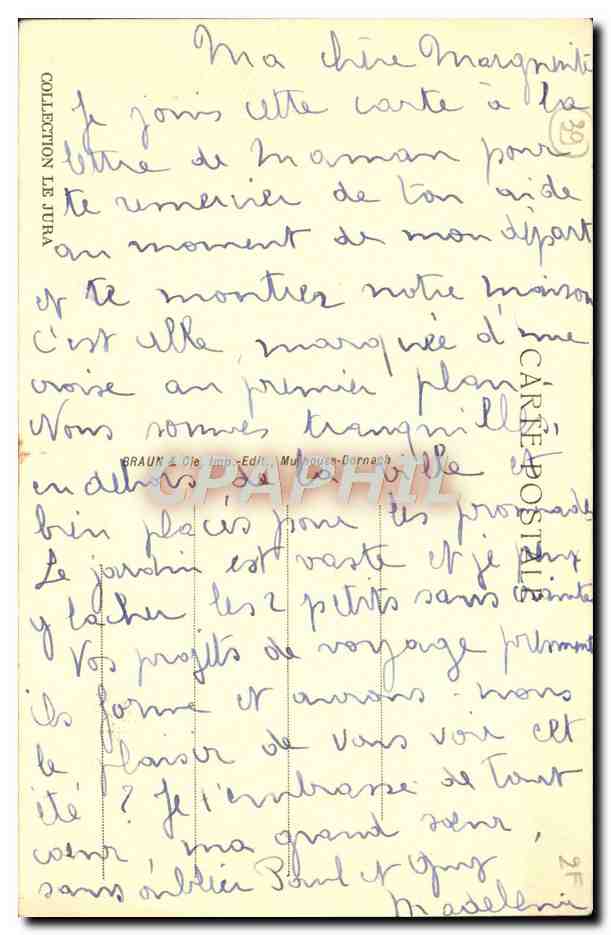 Ma chère Marguerite
Je joins cette carte à la
lettre de Maman pour
te remercier de ton aide
au moment de mon départ
et te montrer notre maison
c'est elle, marquée d'une
croise au premier plan.
Nous sommes tranquilles,
en dehors de la ville et
bien placés pour les promenades
Le jardin est vaste et je peux
y lacher les 2 petits sans crainte
Vos projets de voyage prennent
ils forme et aurons-nous
le plaisir de vous voir cet
été ? Je t'embrasse de tout
coeur, ma grand soeur,
sans oublier Paul et Guy
Madeleine
COLLECTION LE JURA
BRAUN & Cie, Imp.-Edit., Mulhouse-Dornach
CARTE POSTALE
CPAPHIL
39
2F